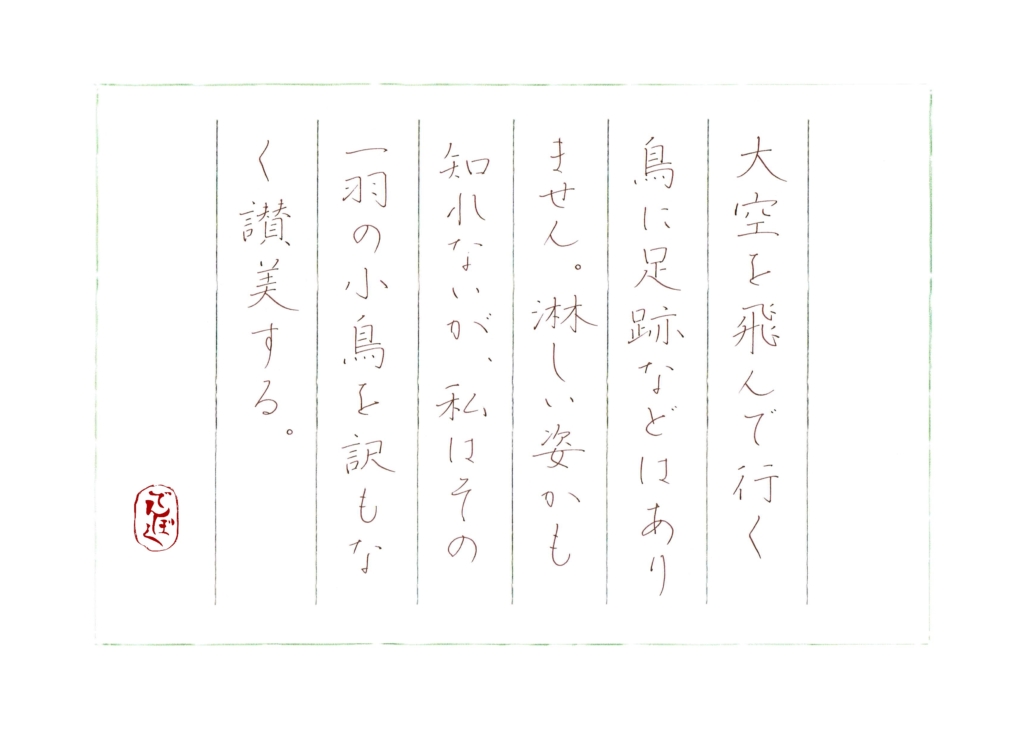 大空を飛んで行く
鳥に足跡などはあり
ません。淋しい姿かも
知れないが、私はその
一羽の小鳥を訳もな
く讃美する。
でんぼく